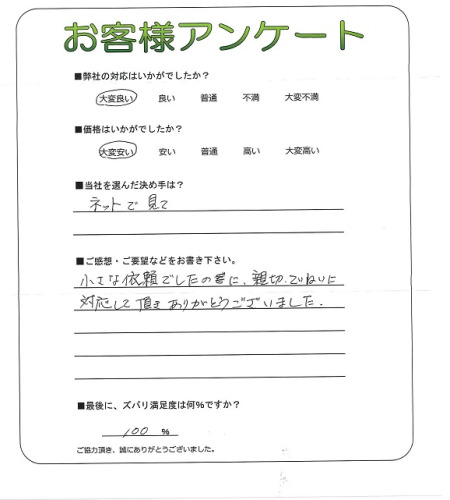 お客様アンケート
■弊社の対応はいかがでしたか？
大変良い 良い 普通 不満 大変不満
■価格はいかがでしたか？
大変安い 安い 普通 高い 大変高い
■当社を選んだ決め手は？
ネットで見て
■ご感想・ご要望などをお書き下さい。
小さな依頼でしたのに、親切、ていねいに
対応して頂きありがとうございました。
■最後に、ズバリ満足度は何％ですか？
100 ％
ご協力頂き、誠にありがとうございました。